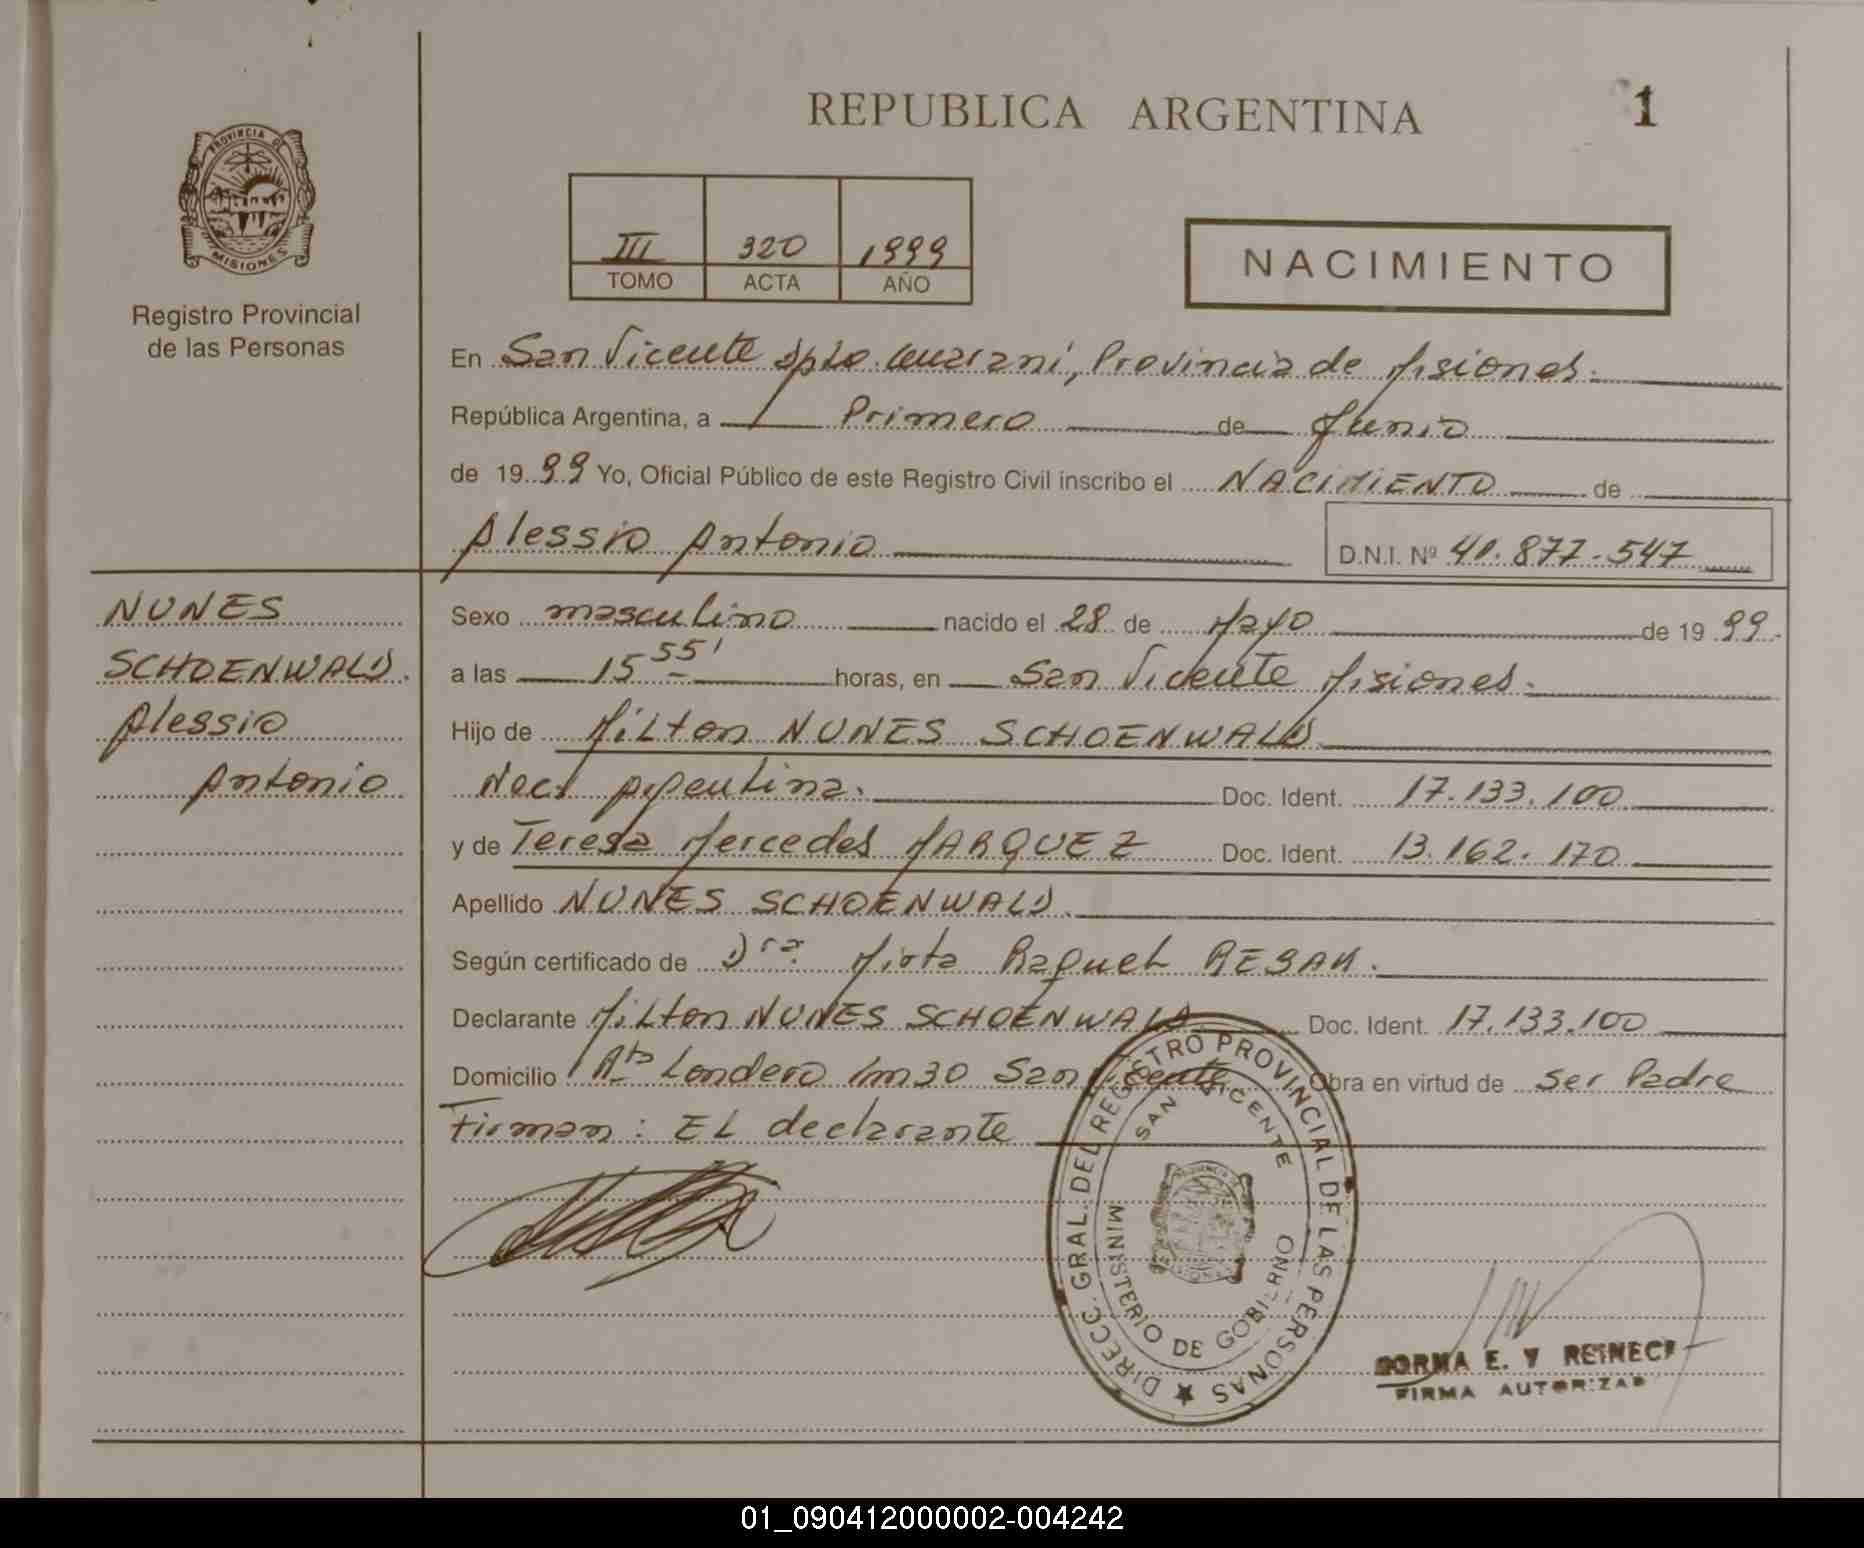 REPUBLICA ARGENTINA
1
PROVINCIA DE
MISIONES
Registro Provincial
de las Personas
III 320 1999
TOMO ACTA AÑO
NACIMIENTO
En San Vicente Dpto. Guaraní, Provincia de Misiones.
República Argentina, a Primero de Junio
de 1999 Yo, Oficial Público de este Registro Civil inscribo el NACIMIENTO de
Alessio Antonio
D.N.I. Nº 41.877.547
NUNES
SCHOENWALD.
Alessio
Antonio
Sexo masculino nacido el 28 de Mayo de 1999.
a las 15 55' horas, en San Vicente Misiones.
Hijo de Milton NUNES SCHOENWALD
Nac. Argentina. Doc. Ident. 17.133.100
y de Teresa Mercedes MARQUEZ Doc. Ident. 13.162.170
Apellido NUNES SCHOENWALD.
Según certificado de Dra. Mirta Raquel
Declarante Milton NUNES SCHOENWALD Doc. Ident. 17.133.100
Domicilio Londero Km30 San Vicente Obra en virtud de ser Padre
Firman: EL declarante
DIRECC. GRAL. DEL REGISTRO PROVINCIAL DE LAS PERSONAS
SAN VICENTE
MINISTERIO DE GOBIERNO
E. V REINECK
FIRMA AUTORIZAD
01_090412000002-004242